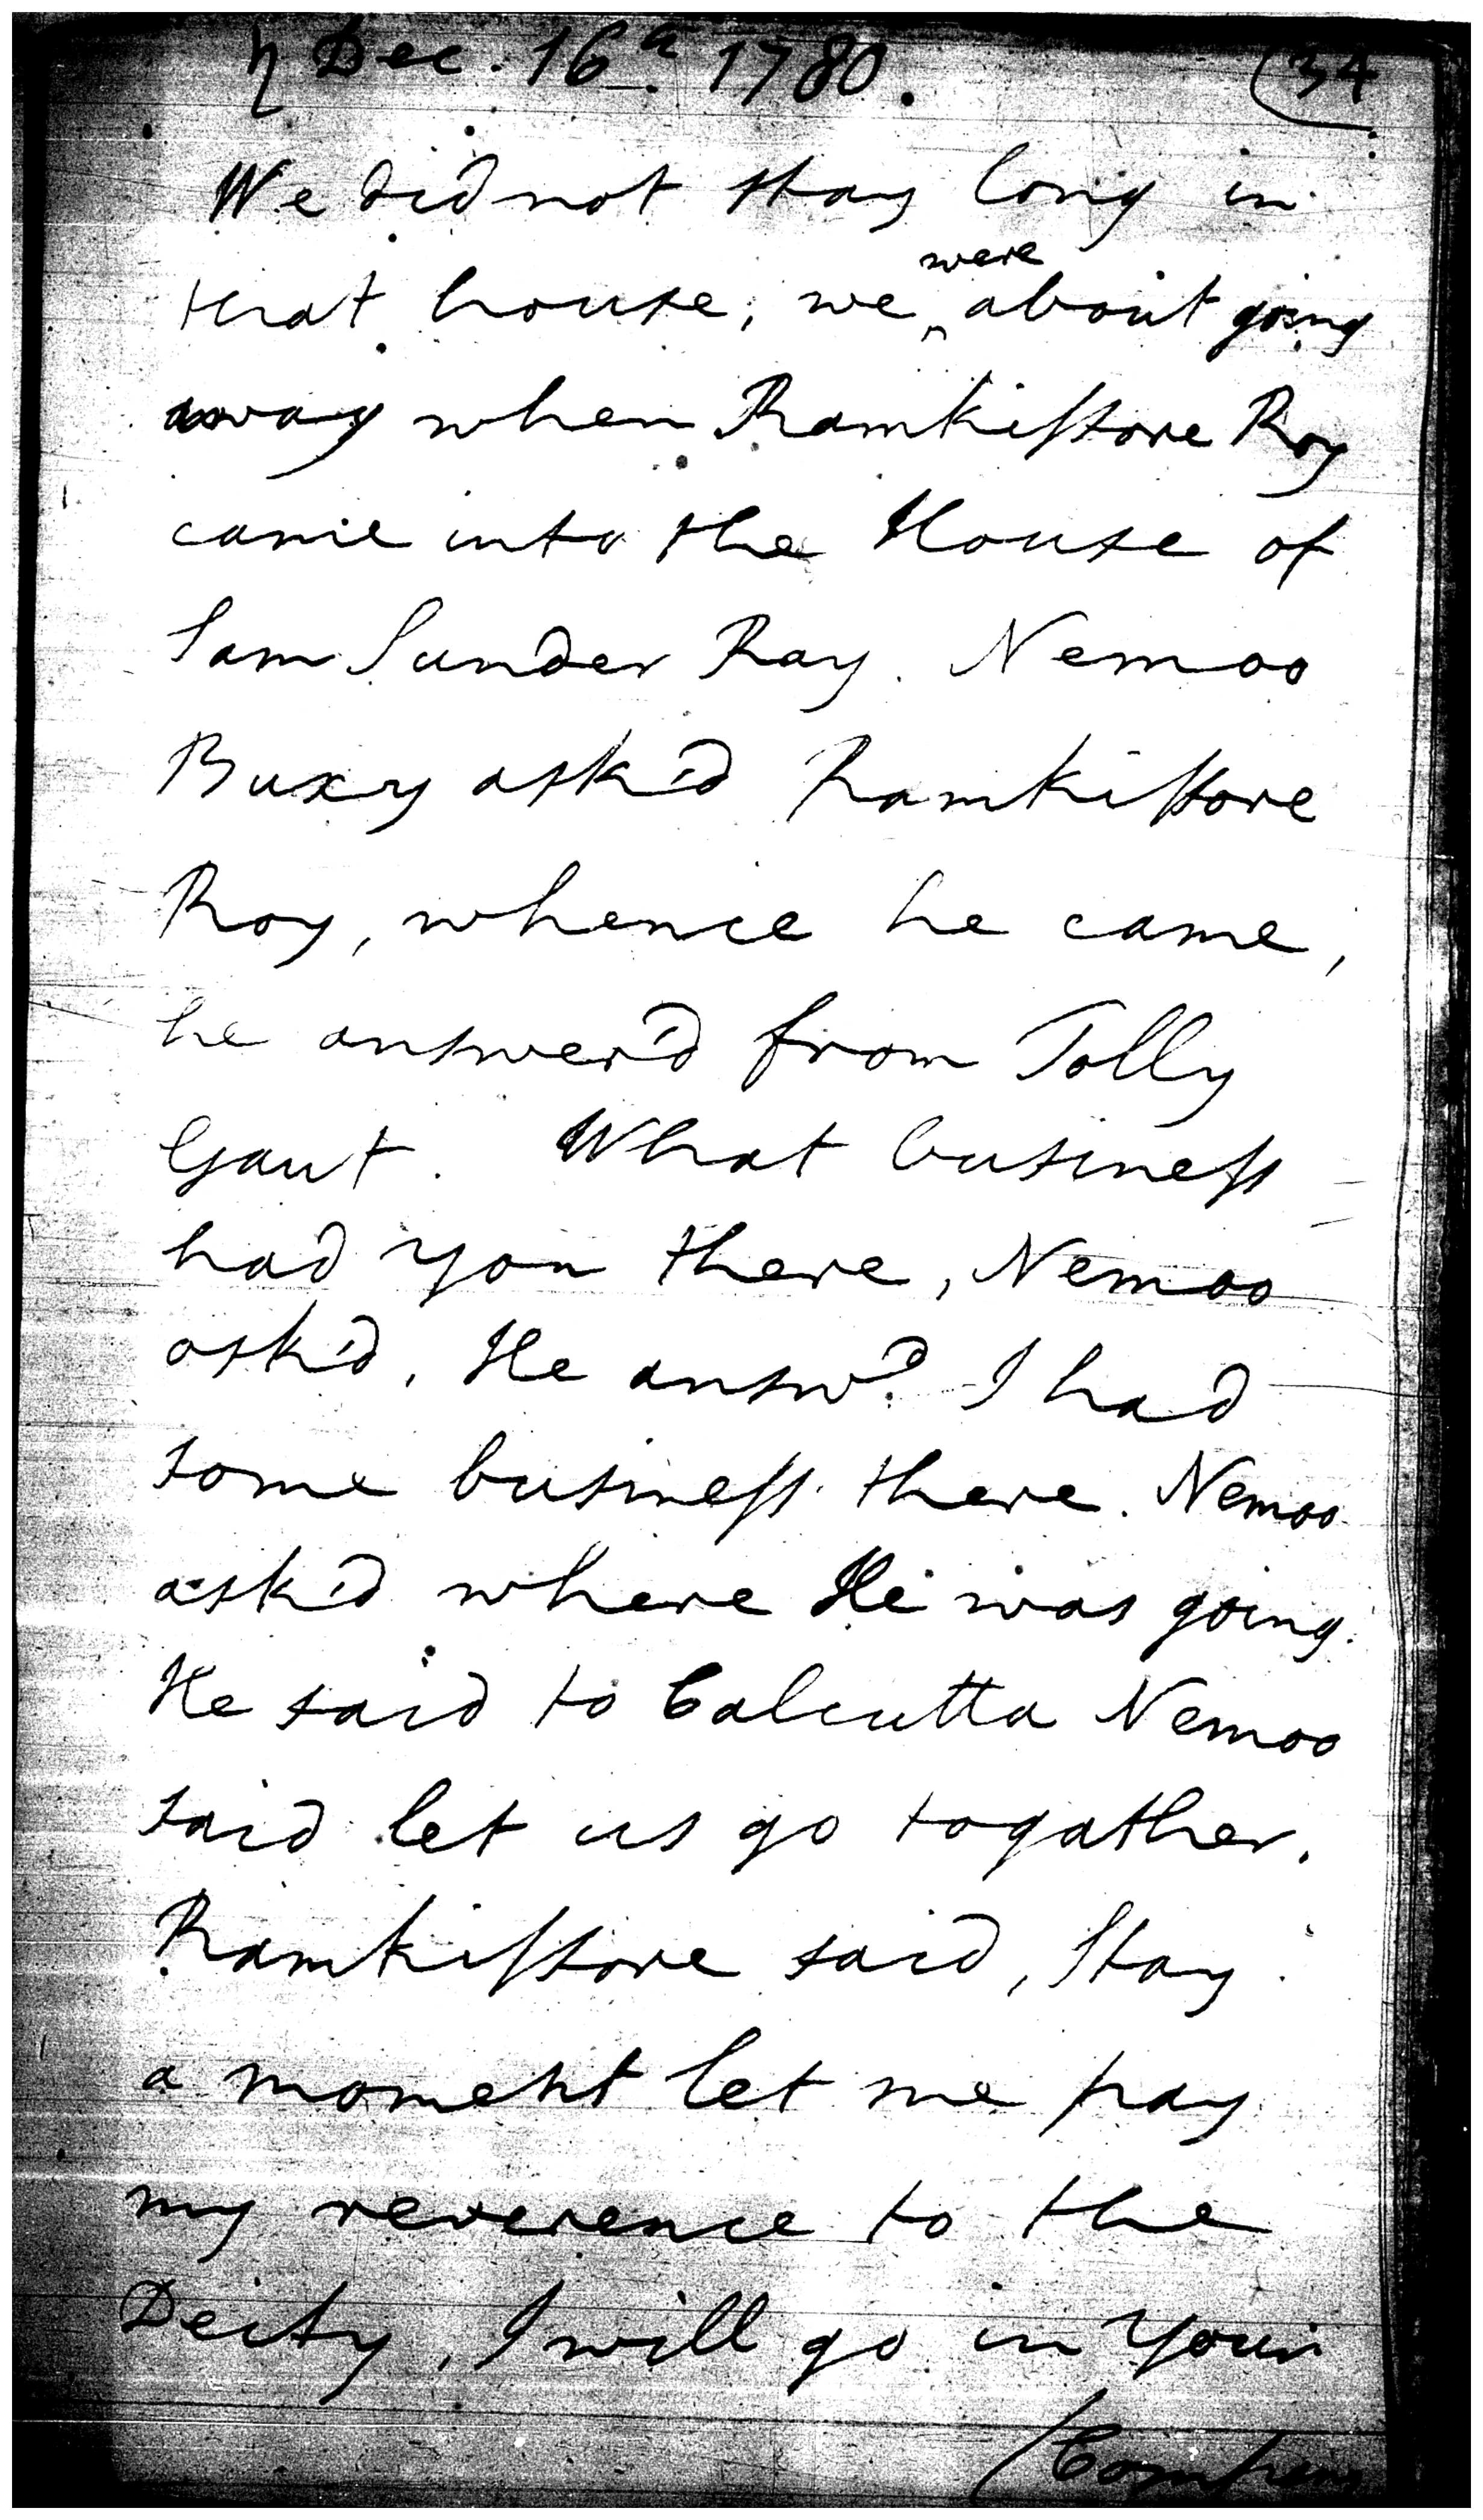 ♄ Dec. 16th 1780. (34
We did not stay long in
that house; we were about going
away when Ramkissore Roy
came into the House of
Sam Sunder Ray. Nemoo
Buxy ask'd Ramkissore
Roy, whence he came,
he answer'd from Tolly
Gaut. What business
had you there, Nemoo
ask'd. He answd. I had
some business there. Nemoo
ask'd where He was going.
He said to Calcutta Nemoo
said let us go togather.
Ramkissore said, Stay
a moment let me pay
my reverence to the
Deity, I will go in your